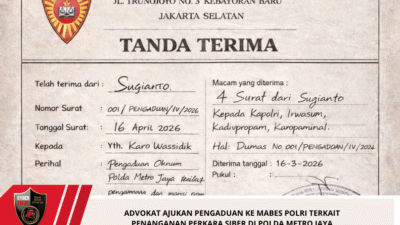 JL. TRUNOJOYO NO. 3 KEBAYORAN BARU
JAKARTA SELATAN
TANDA TERIMA
Telah terima dari : Sugianto.
Nomor Surat : 001 / PENGADUAN/IV/2026
Tanggal Surat : 16 April 2026
Kepada : Yth. Karo Wassidik
Perihal : Pengaduan Oknum
Polda Metro Jaya
Macam yang diterima :
4 Surat dari Sugianto
Kepada Kapolri, Irwasum,
Kadivpropam, Karopaminal.
Hal: Dumas No 001/PENGADUAN/IV/2026
Diterima tanggal : 16-3-2026
Pukul :
ADVOKAT AJUKAN PENGADUAN KE MABES POLRI TERKAIT
PENANGANAN PERKARA SIBER DI POLDA METRO JAYA